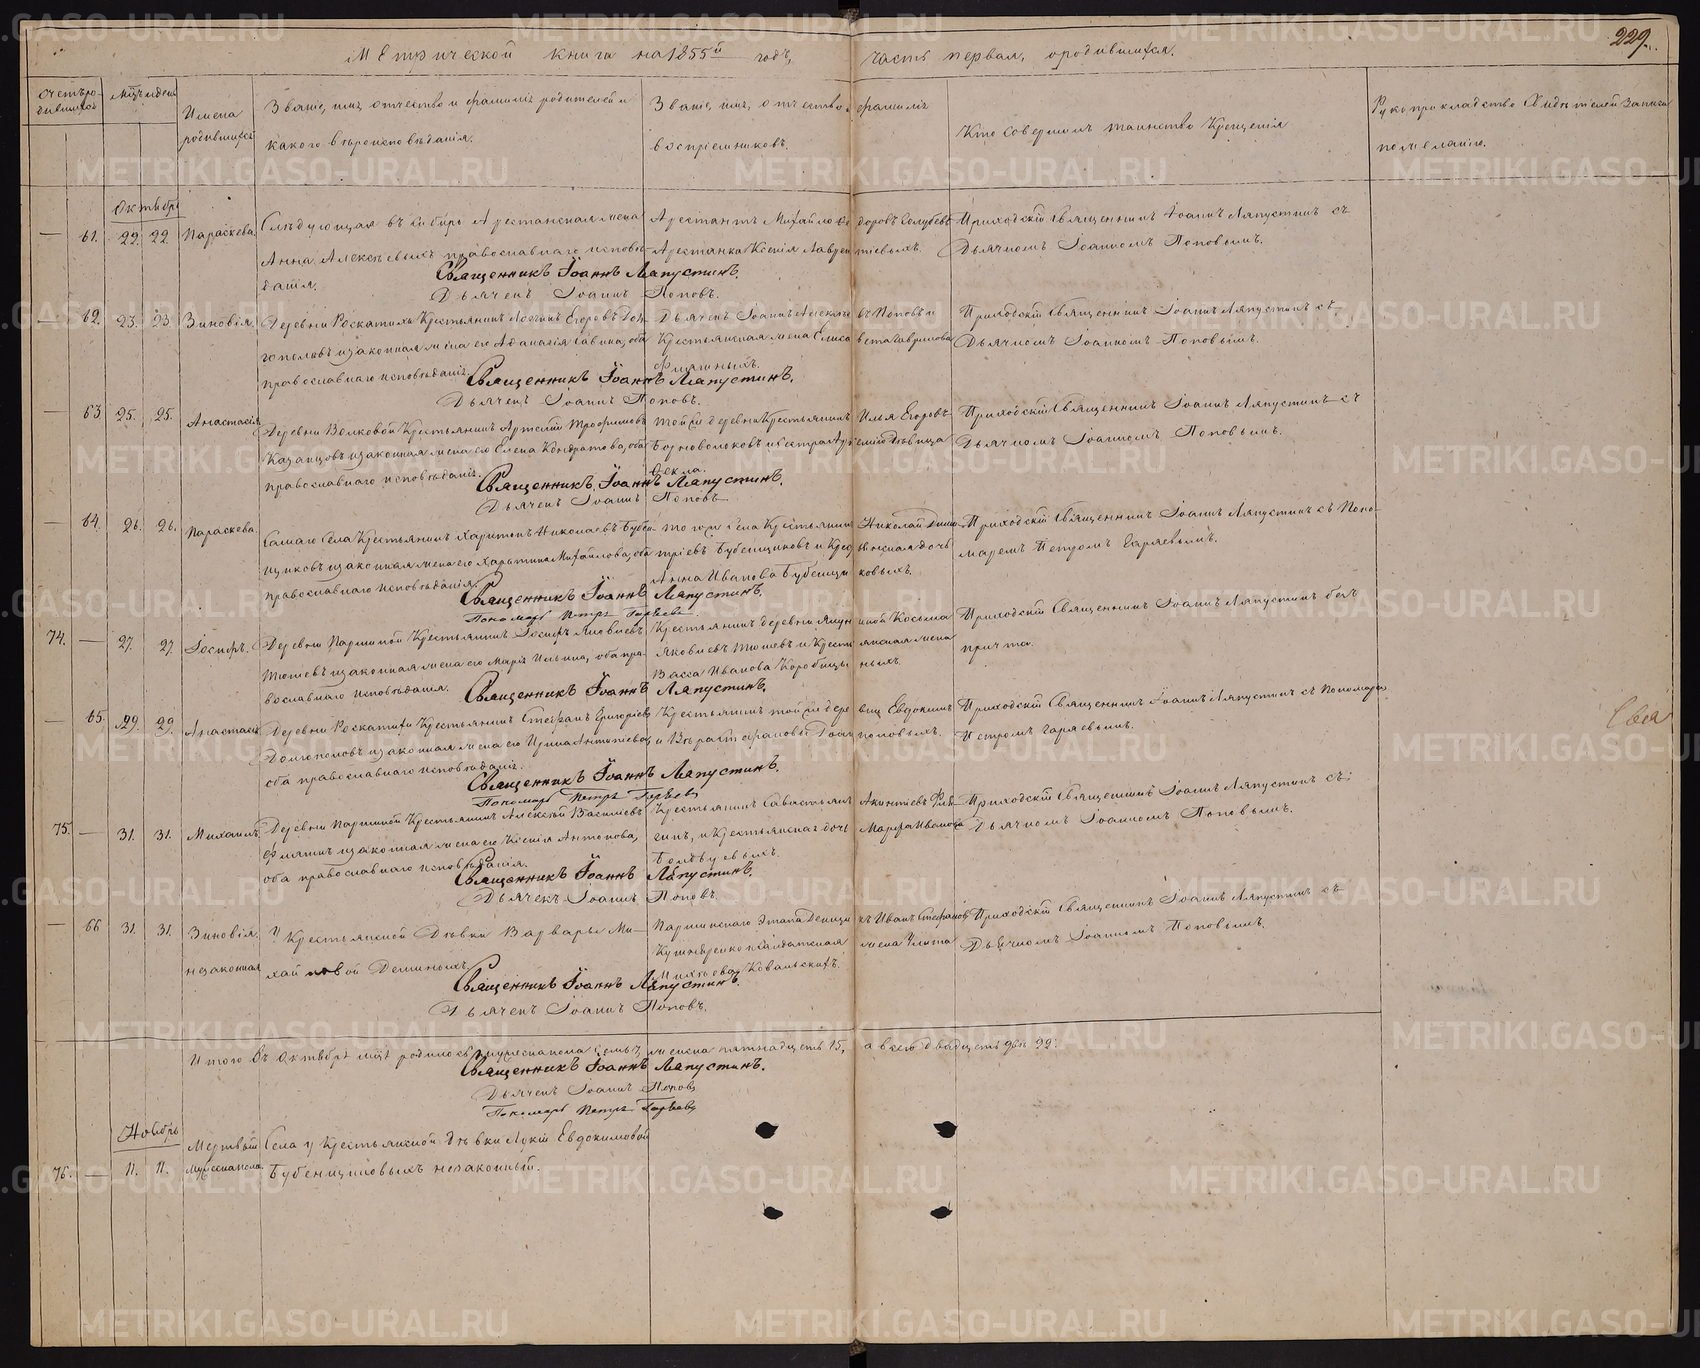 229.
Метрической книги на 1855й годъ, часть первая, о родившихся.
Счетъ родившихся
Мѣсяцъ и день
Имена родившихся
Званіе, имя, отчество и фамилія родителей и
какого вѣроисповѣданія.
Званіе, имя, отчество и фамилія
воспріемниковъ.
Кто совершилъ таинство Крещенія
Рукоприкладство свидѣтелей записи
по желанію.
Октябрь
61. 22. 22. Параскева.
Слѣдующая въ Сибирь Арестанская жена
Анна Алексѣевыхъ православнаго исповѣ-
данія.
Арестантъ Михайло Ѳедоровъ Голубевъ
Арестанка Ксенія Лаврентіевыхъ.
Приходскій Священникъ Іоаннъ Ляпустинъ съ
Дьячкомъ Іоанномъ Поповымъ.
Священникъ Іоаннъ Ляпустинъ.
Дьячекъ Іоаннъ Поповъ.
62. 23. 23. Зиновія.
Деревни Роскатихи Крестьянинъ Логинъ Егоровъ Дол-
гополовъ и законная жена его Аѳанасія Савина, оба
православнаго исповѣданія.
Дьячекъ Іоаннъ Алексѣевъ Поповъ и
Крестьянская жена Елисавета Гаврилова
Приходскій Священникъ Іоаннъ Ляпустинъ съ
Дьячкомъ Іоанномъ Поповымъ.
Священникъ Іоаннъ Ляпустинъ.
Дьячекъ Іоаннъ Поповъ.
63 25. 25. Анастасія.
Деревни Волковой Крестьянинъ Артемій Трофимовъ
Казанцовъ и законная жена его Елена Кондратова, оба
православнаго исповѣданія.
Той же деревни Крестьянинъ Илья Егоровъ
Борноволоковъ и сестра Артемія Дѣвица
Ѳекла.
Приходскій Священникъ Іоаннъ Ляпустинъ съ
Дьячкомъ Іоанномъ Поповымъ.
Священникъ Іоаннъ Ляпустинъ.
Дьячекъ Іоаннъ Поповъ
64. 26. 26. Параскева.
Самаго Села Крестьянинъ Харитонъ Николаевъ Бубен-
щиковъ и законная жена его Харитина Михайлова, оба
православнаго исповѣданія.
Того же села Крестьянинъ Николай Дими-
тріевъ Бубенщиковъ и Крестьянская дочь
Анна Иванова Бубенщиковыхъ.
Приходскій Священникъ Іоаннъ Ляпустинъ съ Поно-
маремъ Петромъ Гаряевымъ.
Священникъ Іоаннъ Ляпустинъ.
Пономарь Петръ Гаряевъ
74. 27. 27. Іосифъ.
Деревни Паршиной Крестьянинъ Іосифъ Яковлевъ
Тюшевъ и законная жена его Марія Ильина, оба пра-
вославнаго исповѣданія.
Крестьянинъ деревни Косьма
Яковлевъ Тюшевъ и Крестьянская жена
Васса Иванова Коробицыныхъ.
Приходскій Священникъ Іоаннъ Ляпустинъ безъ
причта.
Священникъ Іоаннъ Ляпустинъ.
65. 29. 29. Анастасія.
Деревни Роскатихи Крестьянинъ Стефанъ Григорьевъ
Долгополовъ и законная жена его Ирина Антипіева,
оба православнаго исповѣданія.
Крестьянинъ той же деревни Евдокимъ
и Вѣра Стефановы Долгополовыхъ.
Приходскій Священникъ Іоаннъ Ляпустинъ съ Пономаремъ
Петромъ Гаряевымъ.
Священникъ Іоаннъ Ляпустинъ.
Пономарь Петръ Гаряевъ
75. 31. 31. Михаилъ.
Деревни Паршиной Крестьянинъ Алексѣй Васильевъ
и законная жена его Ксенія Антонова,
оба православнаго исповѣданія.
Крестьянинъ Савастьянъ Акинтіевъ
и Крестьянская дочь Марѳа Иванова
Приходскій Священникъ Іоаннъ Ляпустинъ съ
Дьячкомъ Іоанномъ Поповымъ.
Священникъ Іоаннъ Ляпустинъ.
Дьячекъ Іоаннъ Поповъ.
66 31. 31. Зиновія.
незаконная
У Крестьянской Дѣвки Варвары Ми-
хайловой Деминыхъ
Паршинскаго Этапа Деньщикъ Иванъ Стефановъ
Кушнаренко и Солдатская жена Улита
Ковальскихъ.
Приходскій Священникъ Іоаннъ Ляпустинъ съ
Дьячкомъ Іоанномъ Поповымъ.
Священникъ Іоаннъ Ляпустинъ.
Дьячекъ Іоаннъ Поповъ.
Итого въ Октябрѣ мцѣ родилось мужеска пола семь 7, женска пятнадцать 15, а всего двадцать два 22.
Священникъ Іоаннъ Ляпустинъ.
Дьячекъ Іоаннъ Поповъ
Пономарь Петръ Гаряевъ
Ноябрь
76. 11. 11. Мертвый
Мужеска пола.
Села у Крестьянской дѣвки Лукіи Евдокимовой
Бубенщиковыхъ незаконный.
METRIKI.GASO-URAL.RU